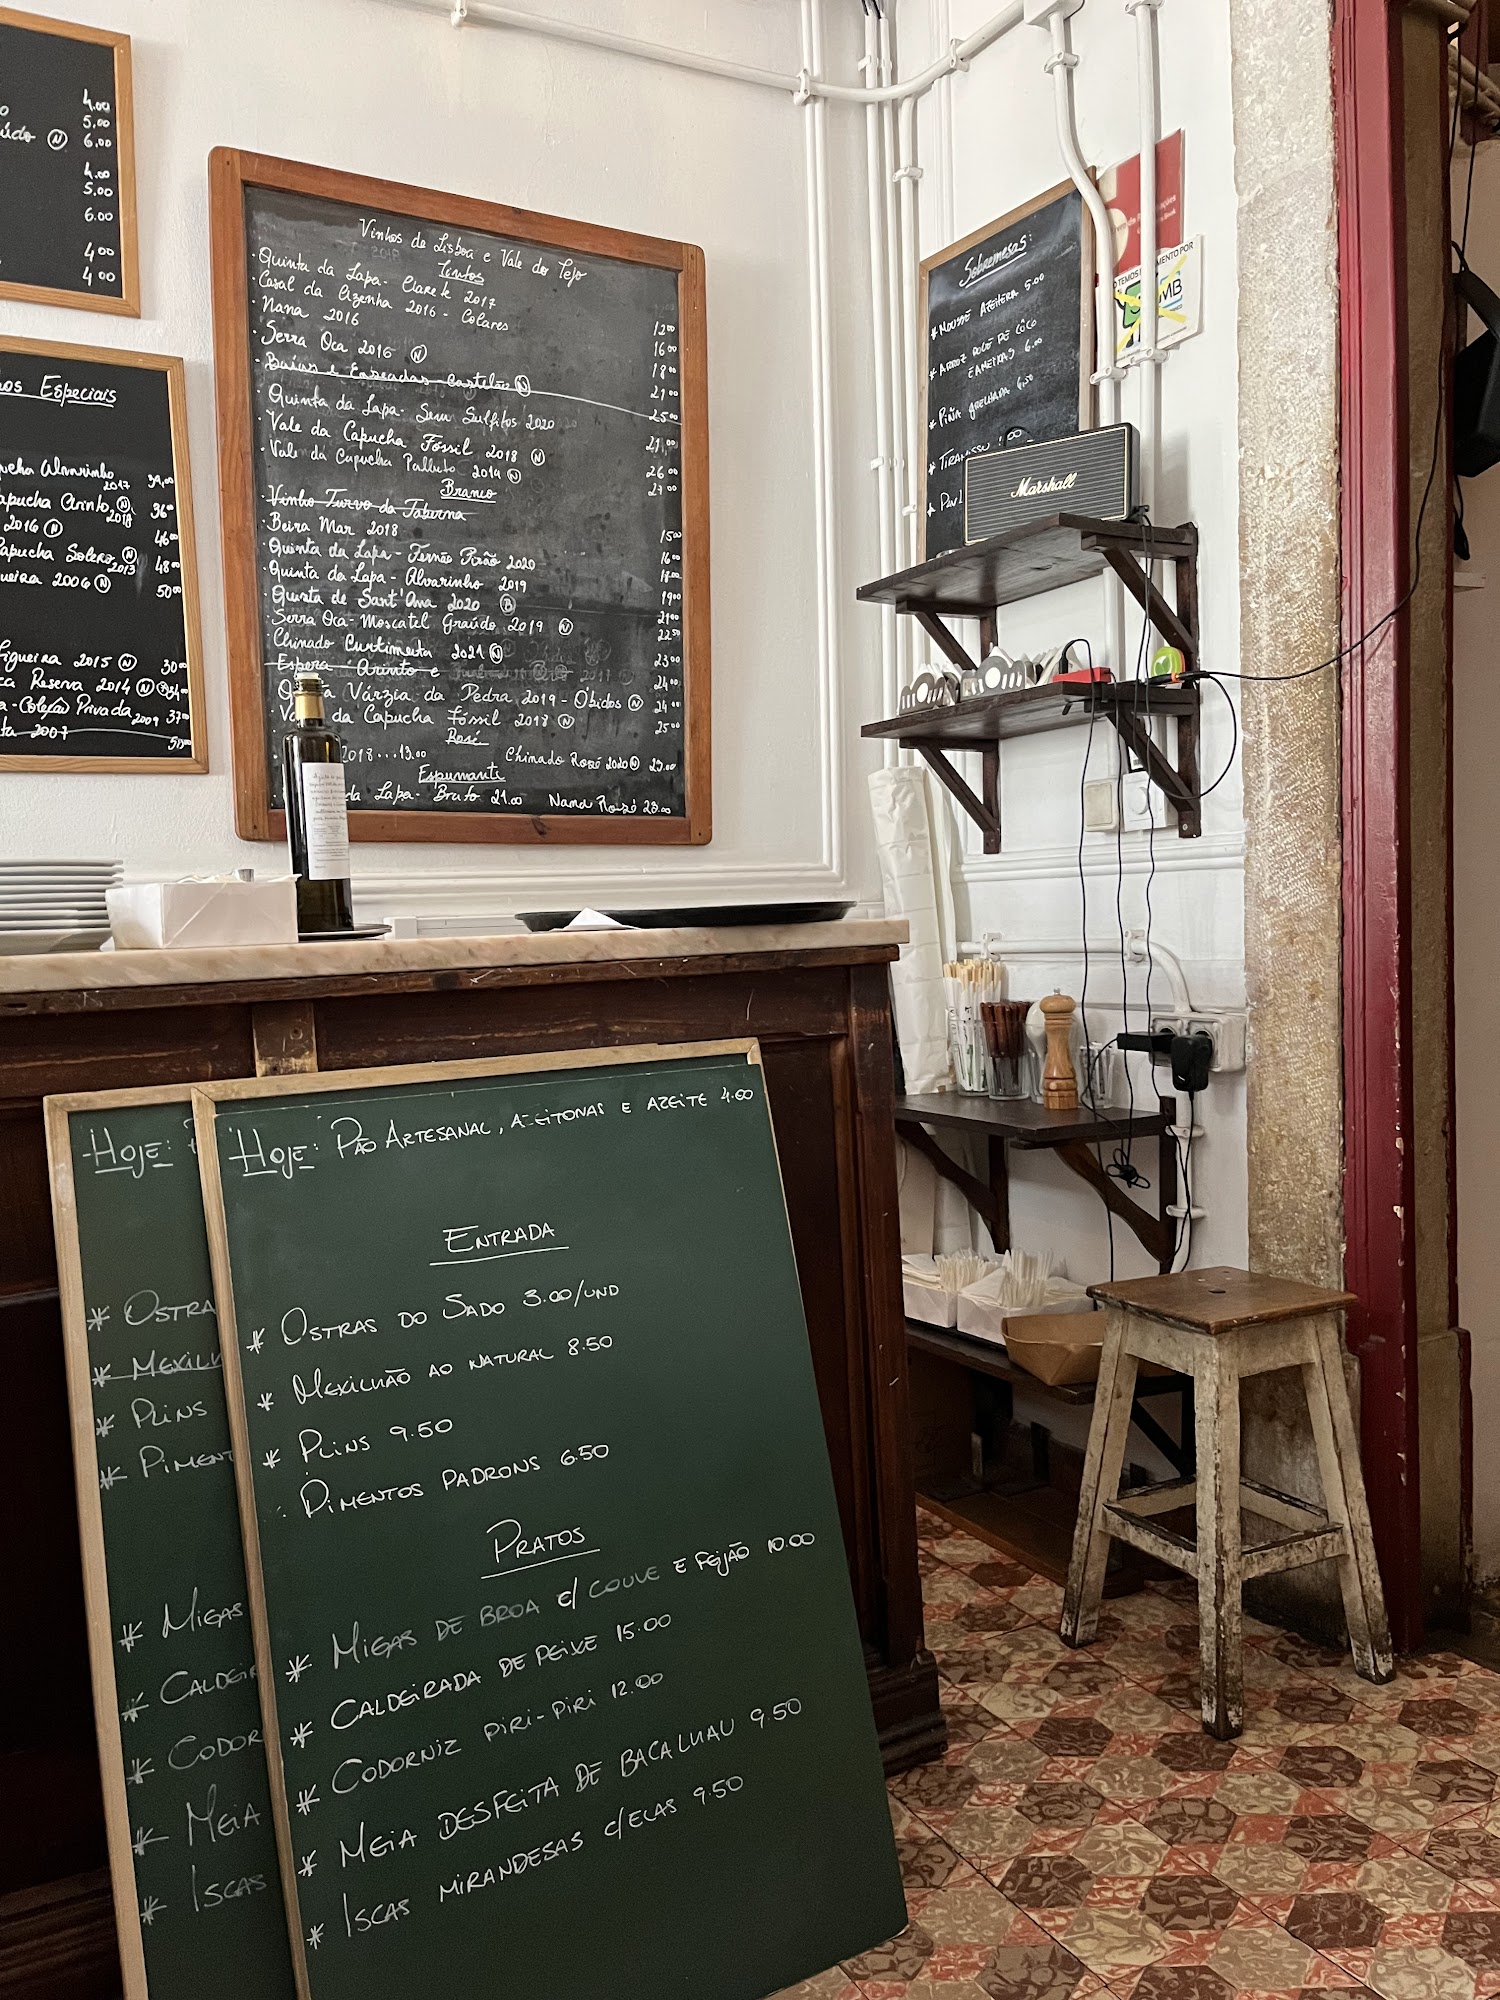 4.00
5.00
údo (N) 6.00
4.00
5.00
6.00
4.00
4.00
Especiais
Alvarinho 2017
apucha Arinto (N) 2018 36.00
2016 (N) 46.00
apucha Solera (N) 2013 48.00
ueira 2006 (N) 50.00
igueira 2015 (N) 30.00
ca Reserva 2014 (N) 34.00
a-Coleção Privada 2009 37.00
ta 2007 50.00
Vinhos de Lisboa e Vale do Tejo
Tintos
· Quinta da Lapa - Clarete 2017 12.00
· Casal da Azenha 2016 - Colares 16.00
· Nana 2016 18.00
· Serra Oca 2016 (N) 21.00
· Baías e Enseadas - Castelão (N) 25.00
· Quinta da Lapa - Sem Sulfitos 2020 21.00
· Vale da Capucha Fóssil 2018 (N) 26.00
· Vale da Capucha Palhete 2019 (N) 27.00
Branco
· Vinho Turvo da Taberna
· Beira Mar 2018 15.00
· Quinta da Lapa - Fernão Pirão 2020 16.00
· Quinta da Lapa - Alvarinho 2019 18.00
· Quinta de Sant'Ana 2020 (B) 19.00
· Serra Oca - Moscatel Graúdo 2019 (N) 21.00
· Chinado Curtimenta 2021 (N) 22.50
· Espera Arinto e 23.00
Várzia da Pedra 2019 - Óbidos (N) 24.00
da Capucha Fóssil 2018 (N) 25.00
Rosé
2018...13.00 Chinado Rosé 2020 (N) 23.00
Espumante
da Lapa - Bruto 21.00 Nana Rosé 23.00
Sobremesas:
* Mousse Azeiteira 5.00
* Arroz doce de côco
e Ameixas 6.00
* Piña grelhada 6.50
* Tiramissu
Marshall
TEMOS
MENTO POR
MB
Hoje:
* Ostra
* Mexilh
* Plins
* Piment
* Migas
* Caldeir
* Codor
* Meia
* Iscas
Hoje: Pão Artesanal, Azeitonas e Azeite 4.00
Entrada
* Ostras do Sado 3.00/und
* Mexilhão ao natural 8.50
* Plins 9.50
: Pimentos Padrons 6.50
Pratos
* Migas de Broa c/ couve e feijão 10.00
* Caldeirada de peixe 15.00
* Codorniz piri-piri 12.00
* Meia desfeita de bacalhau 9.50
* Iscas mirandesas c/elas 9.50